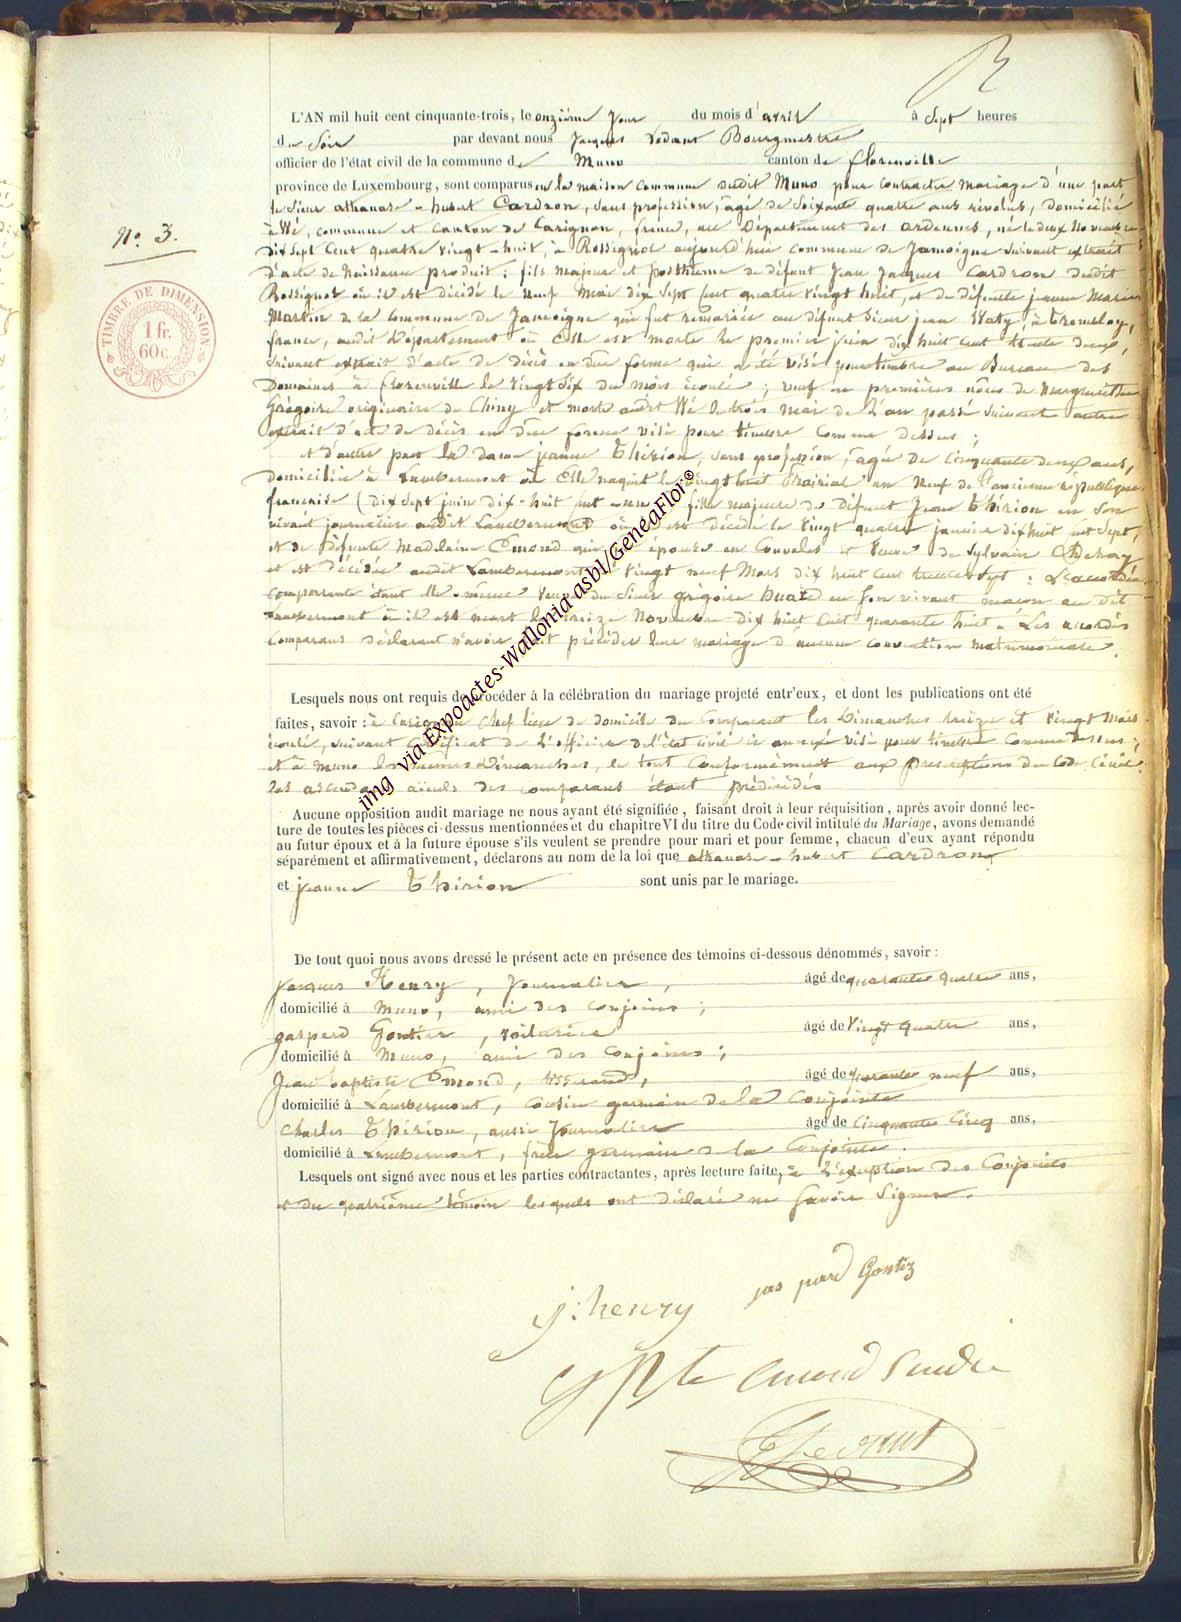 N.º 3.
TIMBRE DE DIMENSION
1 fr.
60c.
L'AN mil huit cent cinquante-trois, le onzième jour du mois d'avril à sept heures
du soir par devant nous Jacques Ledant Bourgmestre
officier de l'état civil de la commune de Muno canton de florenville
province de Luxembourg, sont comparus en la maison commune dudit Muno pour contracter mariage d'une part
le sieur athanase-hubert Cardron, sans profession, âgé de soixante quatre ans révolus, domicilié
à Wé, commune et canton de Carignan, france, au Département des ardennes, né le deux Novembre
dix sept cent quatre vingt-huit, à Rossignol aujourd'hui commune de Jamoigne suivant extrait
d'acte de naissance produit; fils majeur et posthume de défunt Jean Jacques Cardron dudit
Rossignol où il est décédé le neuf Mai dix sept cent quatre vingt huit, et de défunte jeanne Marie
Martin de la commune de Jamoigne qui fut remariée au défunt sieur jean Waty, à tremeloy,
france, audit Département où Elle est morte le premier juin dix huit cent trente deux,
suivant extrait d'acte de décès en due forme qui a été visé pour timbre au Bureau des
Domaines à florenville le vingt six du mois écoulé; veuf en premières noces de Marguerite
Grégoire originaire de Chiny et morte audit Wé le trois mai de l'an passé suivant autre
extrait d'acte de décès en due forme visé pour timbre comme dessus;
et d'autre part la dame jeanne Thirion, sans profession, âgée de cinquante deux ans,
domiciliée à Lambermont où Elle naquit le vingt huit Prairial an neuf de l'ancienne république
française (dix sept juin dix-huit cent un) fille majeure de défunt Jean Thirion en son
vivant journalier audit Lambermont où il est décédé le vingt quatre janvier dix huit cent sept,
et de défunte Madlaine Emond qui épouse en convoles et veuve de sylvain
et est décédée audit Lambermont le vingt neuf Mars dix huit cent trente sept: L'accordée
comparante étant elle-même veuve du sieur grégoire en son vivant maçon au dit
Lambermont où il est mort le treize Novembre dix huit cent quarante huit. Les accordés
comparans déclarant n'avoir fait précéder leur mariage d'aucune convention matrimoniale.
Lesquels nous ont requis de procéder à la célébration du mariage projeté entr'eux, et dont les publications ont été
faites, savoir: à Carignan chef lieu de domicile du comparant les Dimanches treize et vingt Mars
écoulé, suivant certificat de l'officier de l'état civil ci annexé visé pour timbre comme dessus;
et à Muno les mêmes Dimanches, le tout conformément aux prescriptions du Code Civil.
les ascendans aïeuls des comparans étant prédécédés
Aucune opposition audit mariage ne nous ayant été signifiée, faisant droit à leur réquisition, après avoir donné lec-
ture de toutes les pièces ci-dessus mentionnées et du chapitre VI du titre du Code civil intitulé du Mariage, avons demandé
au futur époux et à la future épouse s'ils veulent se prendre pour mari et pour femme, chacun d'eux ayant répondu
séparément et affirmativement, déclarons au nom de la loi que athanase-hubert Cardron
et jeanne Thirion sont unis par le mariage.
De tout quoi nous avons dressé le présent acte en présence des témoins ci-dessous dénommés, savoir:
jacques Henry, Journalier, âgé de quarante quatre ans,
domicilié à Muno, ami des conjoins;
gaspard Gontier, voiturier âgé de vingt quatre ans,
domicilié à Muno, ami des conjoins;
Jean baptiste Emond, tisserand, âgé de quarante neuf ans,
domicilié à Lambermont, cousin germain de la conjointe
Charles Thirion, aussi journalier âgé de cinquante cinq ans,
domicilié à Lambermont, frère germain de la conjointe.
Lesquels ont signé avec nous et les parties contractantes, après lecture faite, à l'exception des conjoints
et du quatrième témoin lesquels ont déclaré ne savoir signer.
j: henry
jas pard Gontiez
Emond
Ledant
img via Expoactes-Wallonia asbl/GeneaFlor©